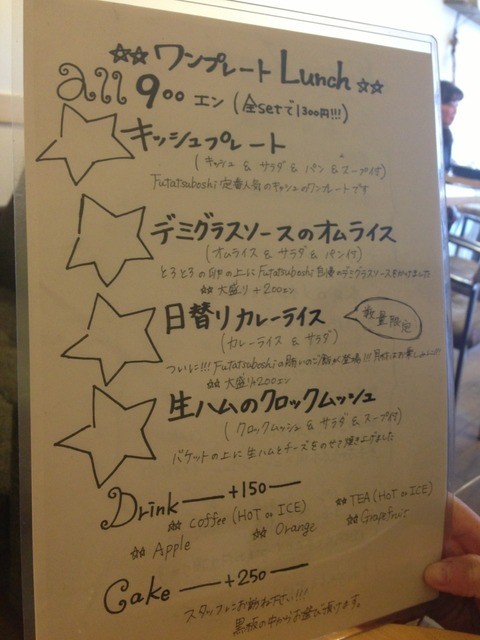 ☆☆ ワンプレート Lunch ☆☆
all 900 エン (全setで1300円!!!)
キッシュプレート
(キッシュ & サラダ & パン & スープ付)
Futatsuboshi定番人気のキッシュのワンプレートです
デミグラスソースのオムライス
(オムライス & サラダ & パン付)
とろとろの卵の上にFutatsuboshi自慢のデミグラスソースをかけました
☆☆ 大盛り +200エン
日替りカレーライス
数量限定
(カレーライス & サラダ)
ついに!!! Futatsuboshiの賄いのご飯が登場!!!
☆☆ 大盛り+200エン
生ハムのクロックムッシュ
(クロックムッシュ & サラダ & スープ付)
バケットの上に生ハムとチーズをのせて焼き上げました
Drink +150
☆☆ coffee (HOT or ICE)
☆☆ TEA (HOT or ICE)
☆☆ Apple
☆☆ Orange
☆☆ Grapefruit
Cake +250
スタッフにお訪ね下さい!!!
黒板の中からお選び頂けます。